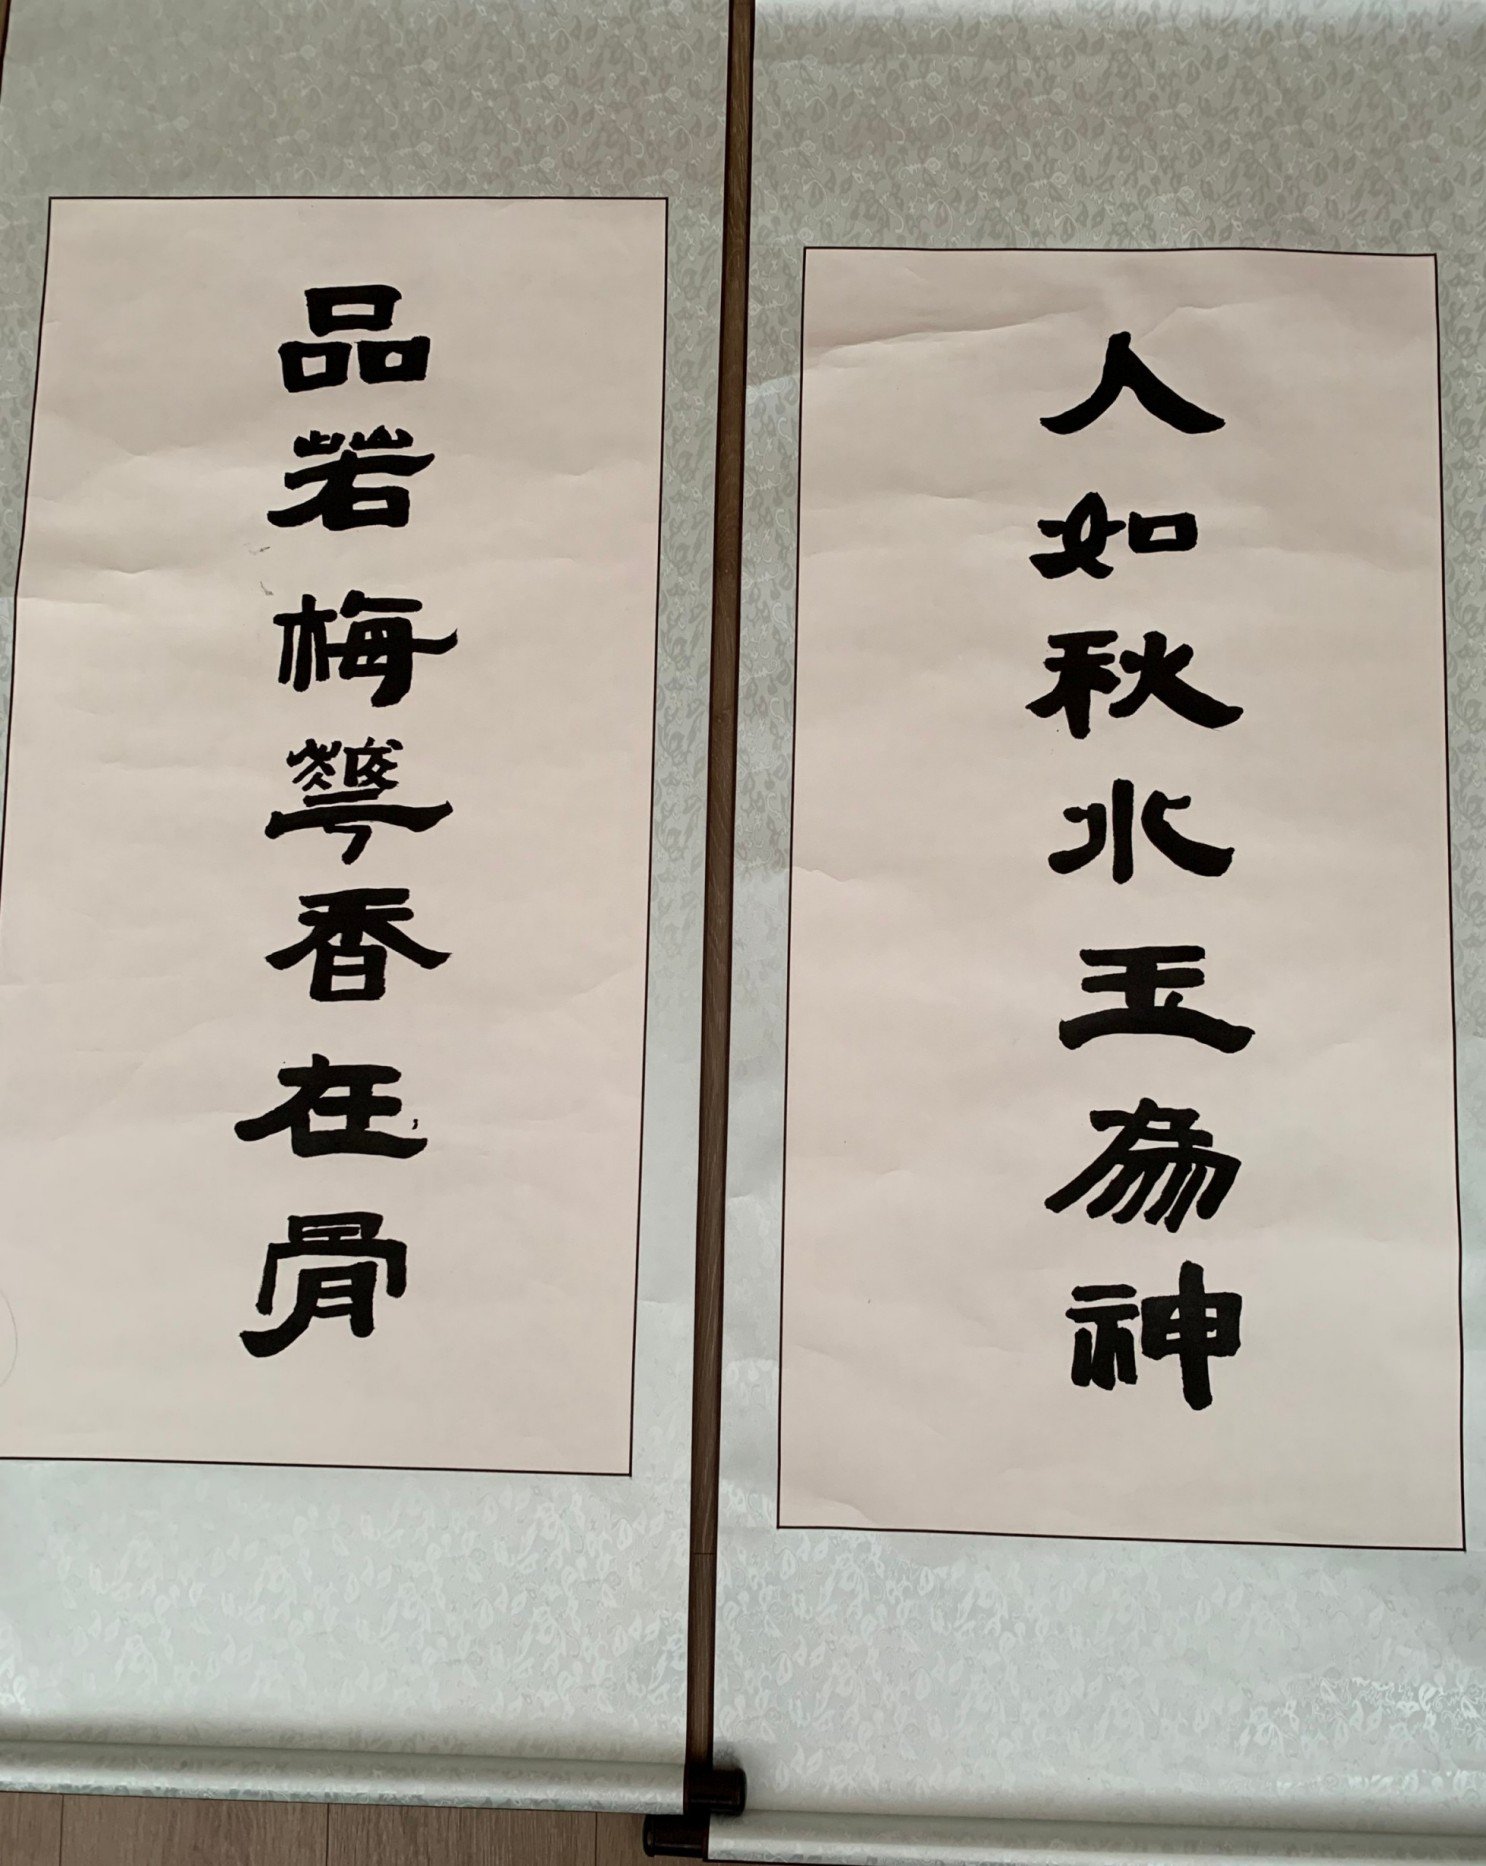 人如秋水玉為神
品若梅華香在骨